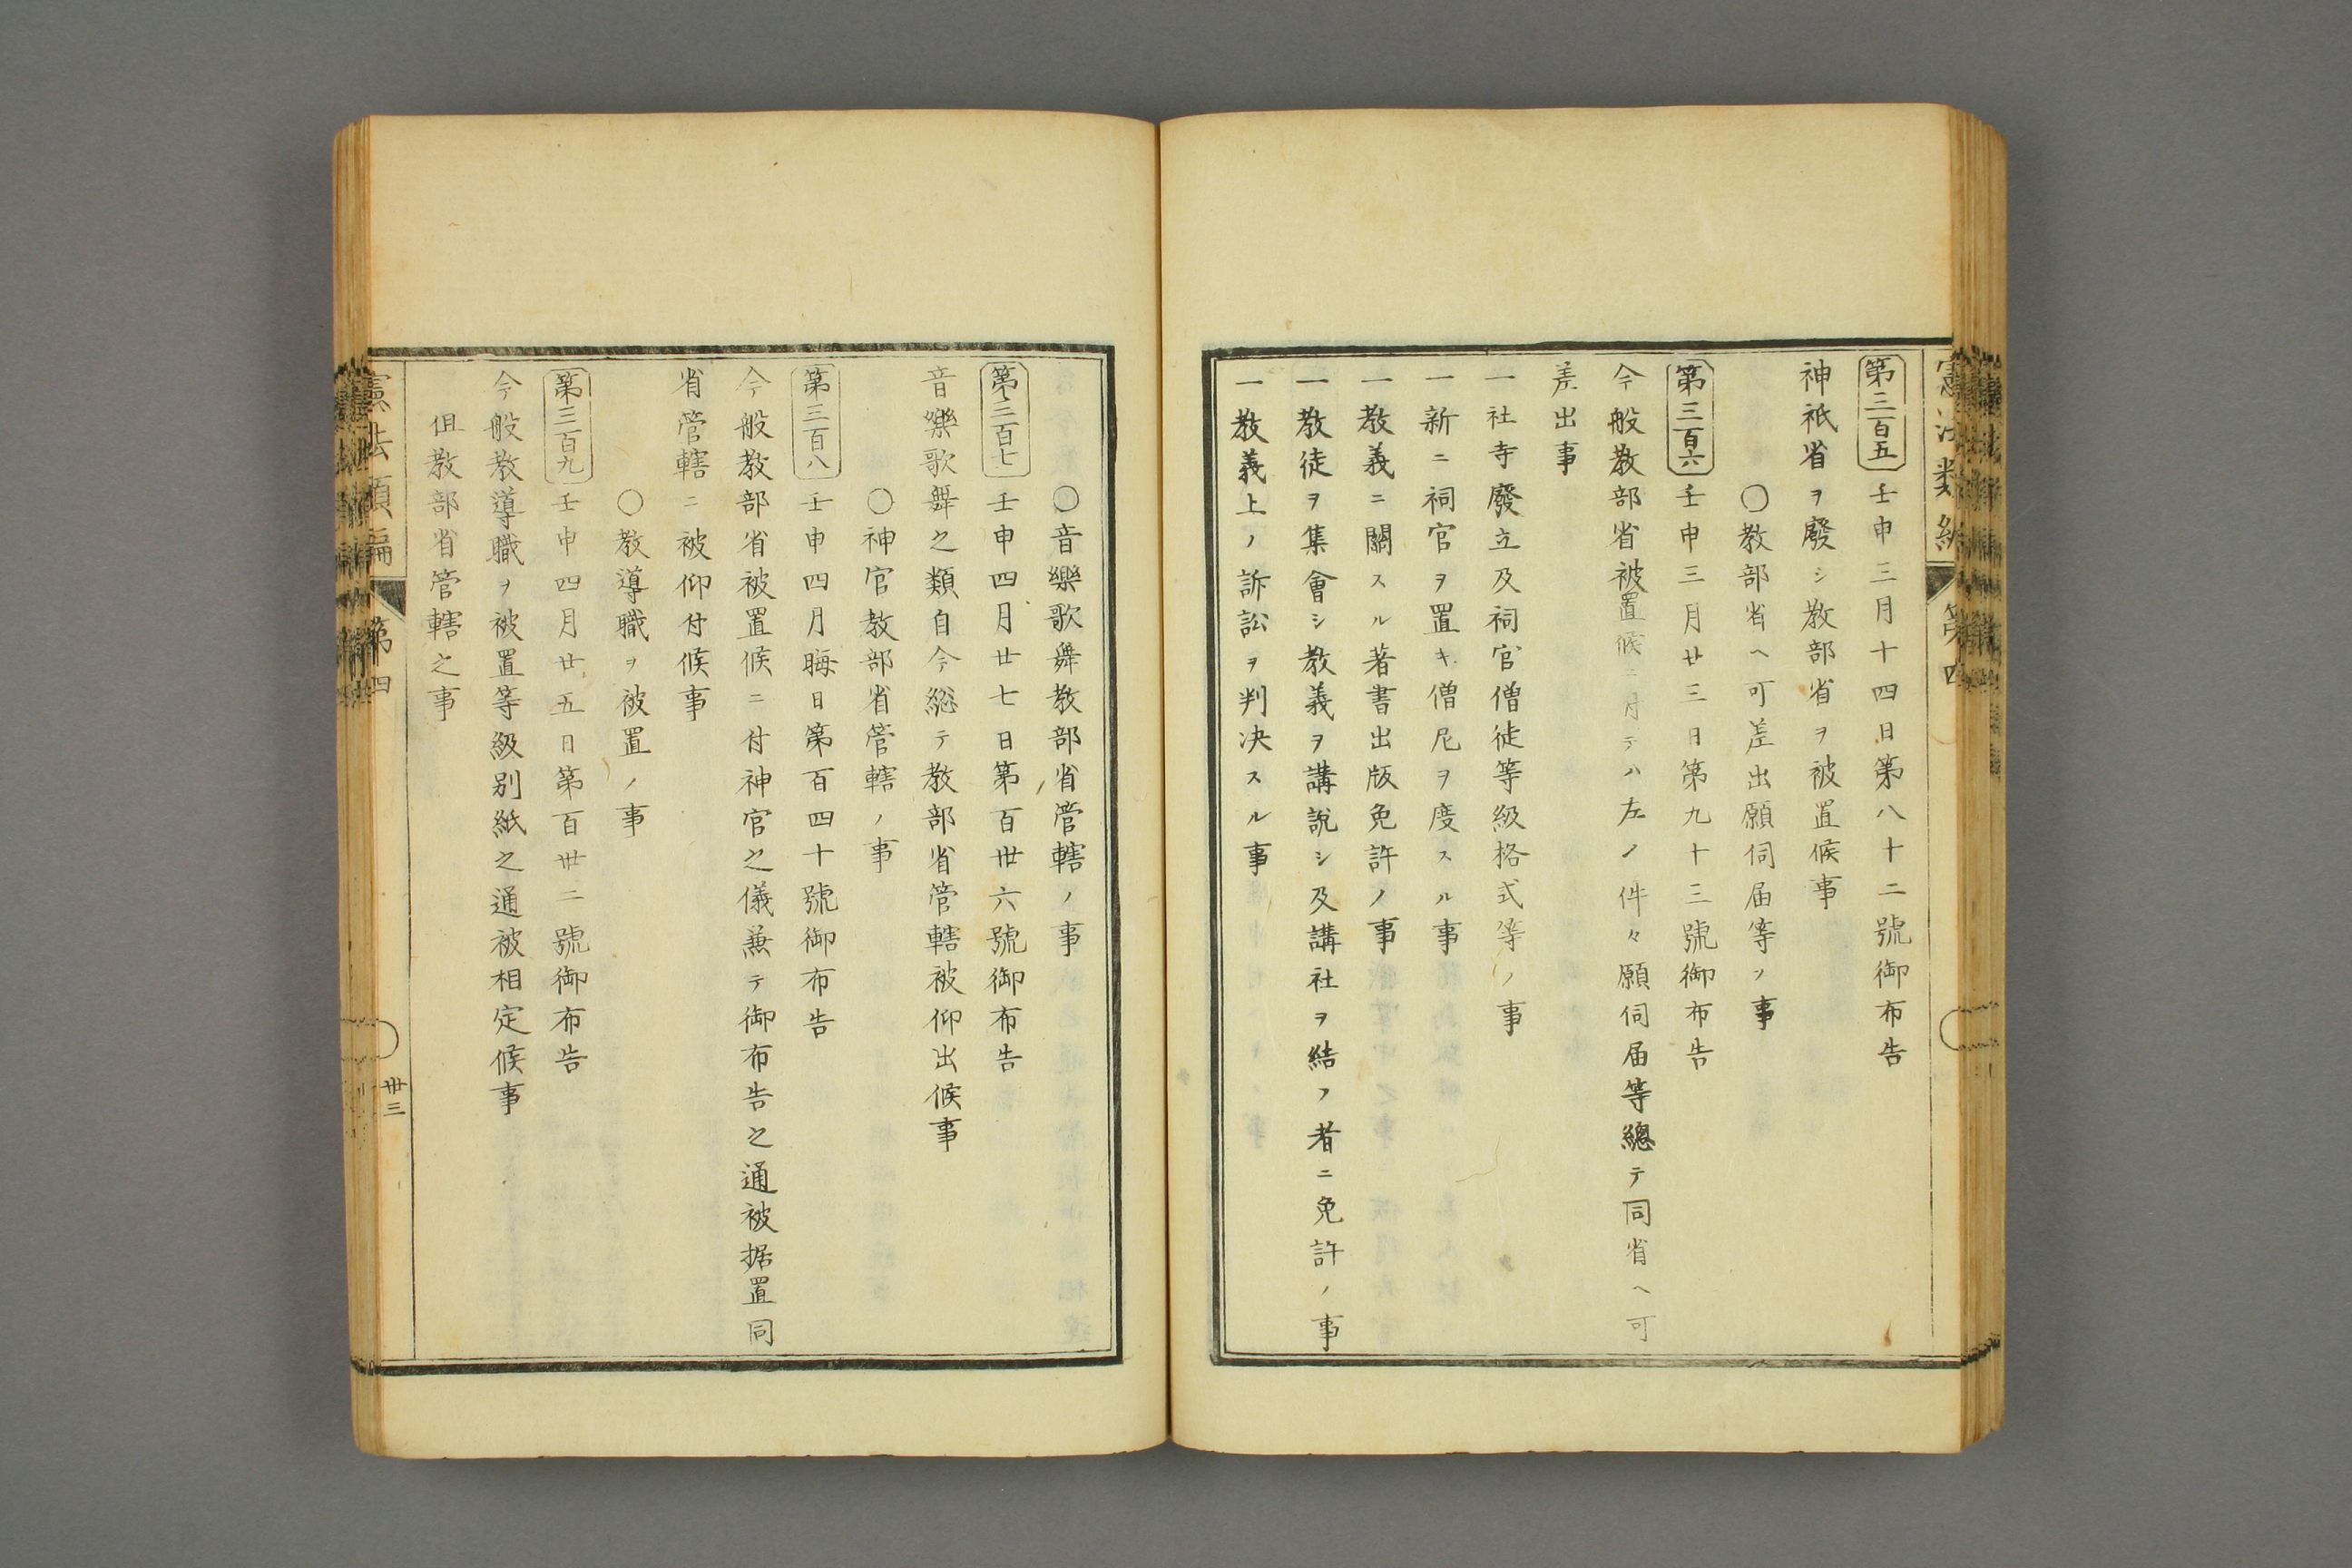 第三百五 壬申三月十四日第八十二號御布告
神祇省ヲ廢シ教部省ヲ被置候事
〇教部省ヘ可差出願伺届等ノ事
第三百六 壬申三月廿三日第九十三號御布告
今般教部省被置候ニ付テハ左ノ件々願伺届等總テ同省ヘ可
差出事
一社寺廢立及祠官僧徒等級格式等ノ事
一新ニ祠官ヲ置キ僧尼ヲ度スル事
一教義ニ關スル著書出版免許ノ事
一教徒ヲ集會シ教義ヲ講說シ及講社ヲ結フ者ニ免許ノ事
一教義上ノ訴訟ヲ判决スル事
〇音樂歌舞教部省管轄ノ事
第三百七 壬申四月廿七日第百卅六號御布告
音樂歌舞之類自今総テ教部省管轄被仰出候事
〇神官教部省管轄ノ事
第三百八 壬申四月晦日第百四十號御布告
今般教部省被置候ニ付神官之儀兼テ御布告之通被据置同
省管轄ニ被仰付候事
〇教導職ヲ被置ノ事
第三百九 壬申四月廿五日第百卅二號御布告
今般教導職ヲ被置等級別紙之通被相定候事
但教部省管轄之事
憲法類編 第四 卅三